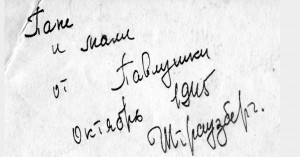 Папе
и маме
от Павлушки
Октябрь 1945
Штраузберг.